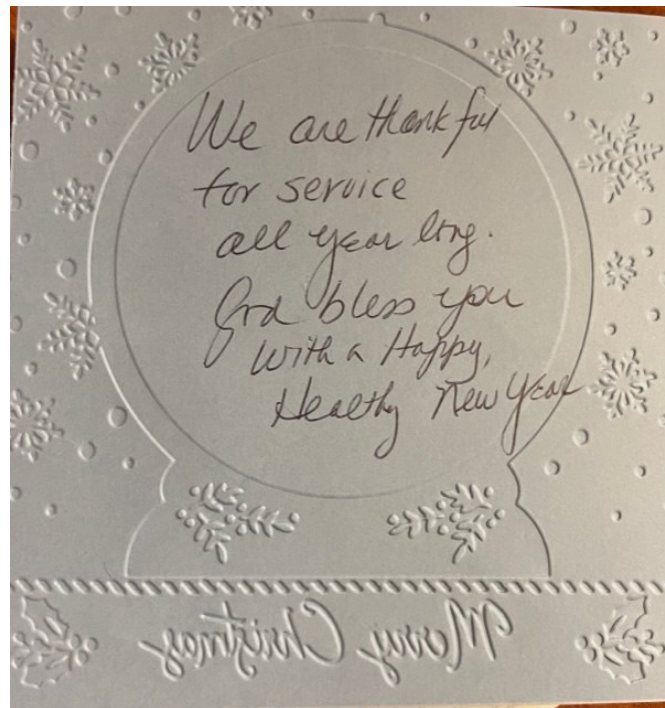 We are thankful
for service
all year long.
God bless you
with a Happy,
Healthy New Year
Merry Christmas